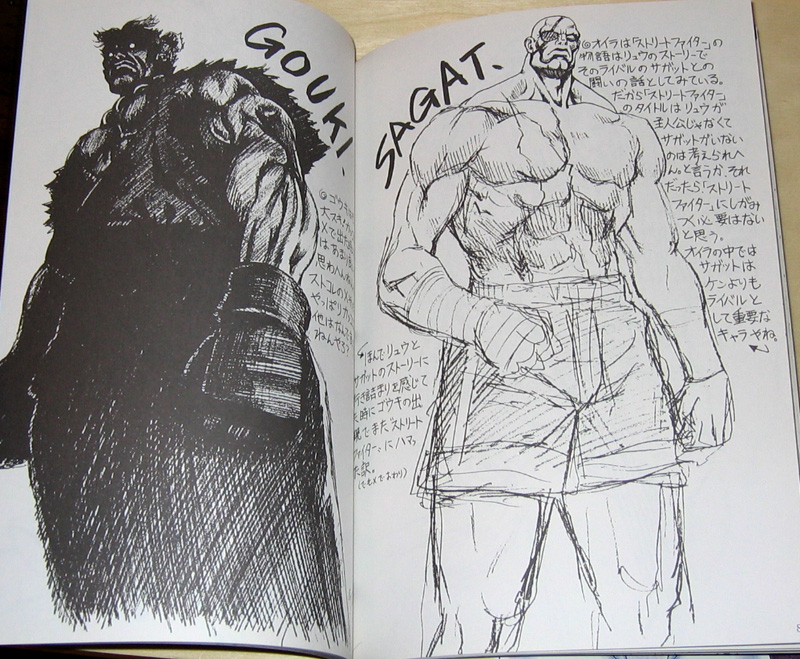 GOUKI.
SAGAT.
◎オイラは「ストリートファイター」の
物語はリュウのストーリーで
そのライバルのサガットとの
闘いの話としてみている。
だから「ストリートファイター」
のタイトルはリュウが
主人公じゃなくて
サガットがいない
のは考えられへ
ん。と言うか、それ
だったら「ストリート
ファイター」にしがみ
つく必要はない
と思う。
オイラの中では
サガットは
ケンよりも
ライバルと
して重要な
キャラやね。
ほんでリュウと
サガットのストーリーに
行き詰まりを感じて
た時にゴウキの出
現でまた「ストリート
ファイター」にハマっ
た訳。
◎ゴウキ
大スキ
Xで出た
はあま
思わへん
ストコレのメ
やっぱり
他はなん
ねんやろ?